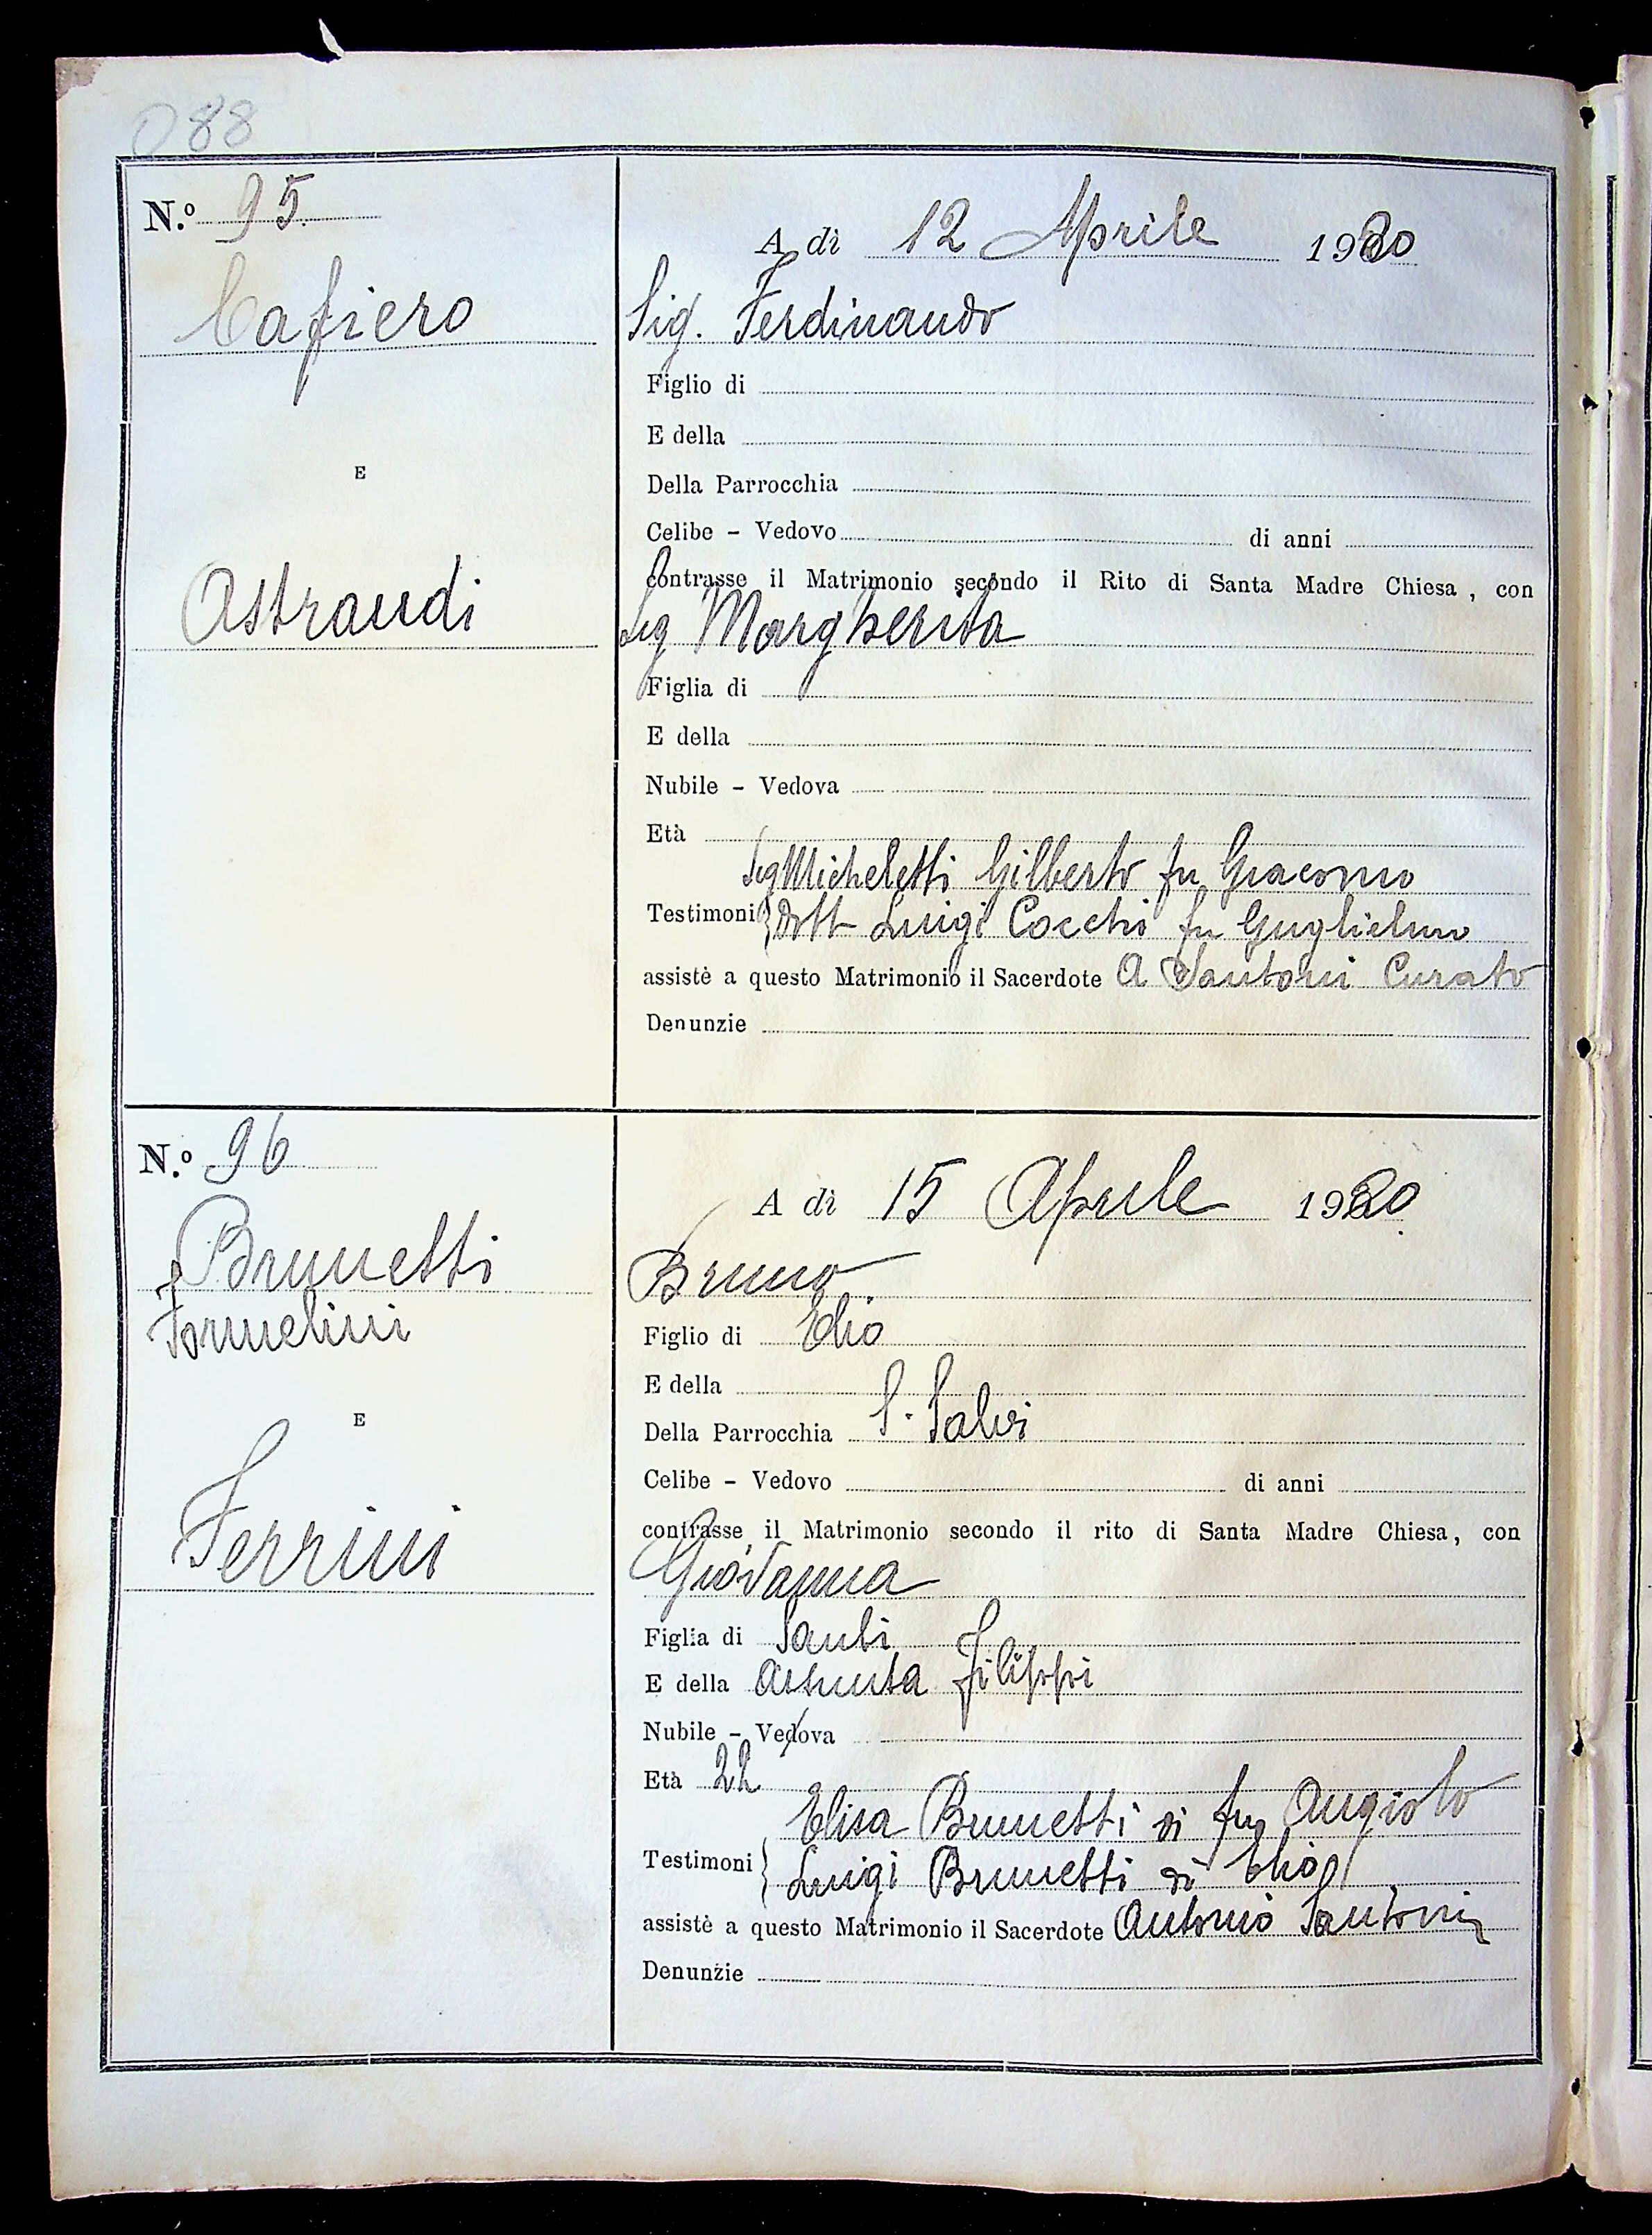 088
N.º 95.
A dì 12 Aprile 1920
Cafiero
Sig. Ferdinando
Figlio di
E della
E
Della Parrocchia
Celibe - Vedovo di anni
contrasse il Matrimonio secondo il Rito di Santa Madre Chiesa, con
Astraudi
Sig Margherita
Figlia di
E della
Nubile - Vedova
Età
Sig Micheletti Gilberto fu Giacomo
Testimoni dott Luigi Cocchi fu Guglielmo
assistè a questo Matrimonio il Sacerdote A Santoni Curato
Denunzie
N.º 96
A dì 15 Aprile 1920
Brunetti
Bruno
Figlio di Elio
E della
E
Della Parrocchia S. Salvi
Celibe - Vedovo di anni
contrasse il Matrimonio secondo il rito di Santa Madre Chiesa, con
Ferrini
Giovanna
Figlia di Santi
E della Assunta Filippi
Nubile - Vedova
Età 22
Elisa Brunetti di fu Angiolo
Testimoni Luigi Brunetti di Elio
assistè a questo Matrimonio il Sacerdote Antonio Santoni
Denunzie